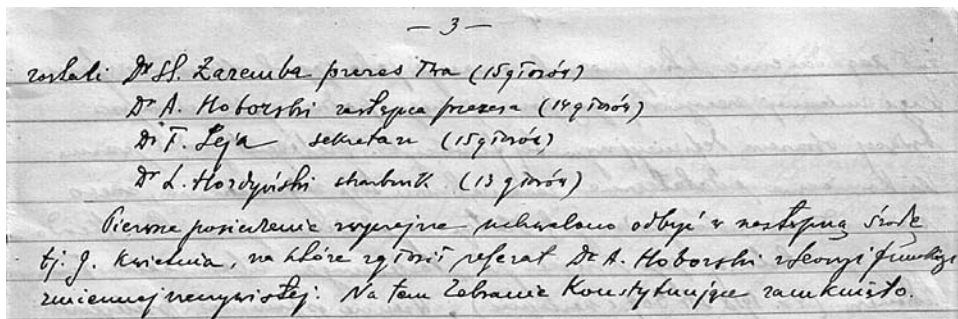 — 3 —
zostali Dr St. Zaremba prezes Twa (15 głosów)
Dr A. Hoborski zastępca prezesa (14 głosów)
Dr F. Leja sekretarz (15 głosów)
Dr L. Hordyński skarbnik (13 głosów)
Pierwsze posiedzenie zwyczajne uchwalono odbyć w następną środę
tj. 9. kwietnia, na które zgłosił referat Dr. A. Hoborski z teoryi funkcyi
zmiennej rzeczywistej. Na tem Zebranie Konstytuujące zamknięto.